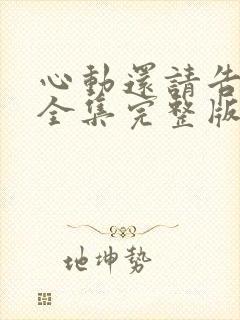 心動還請告
全集完整版
地坤勢